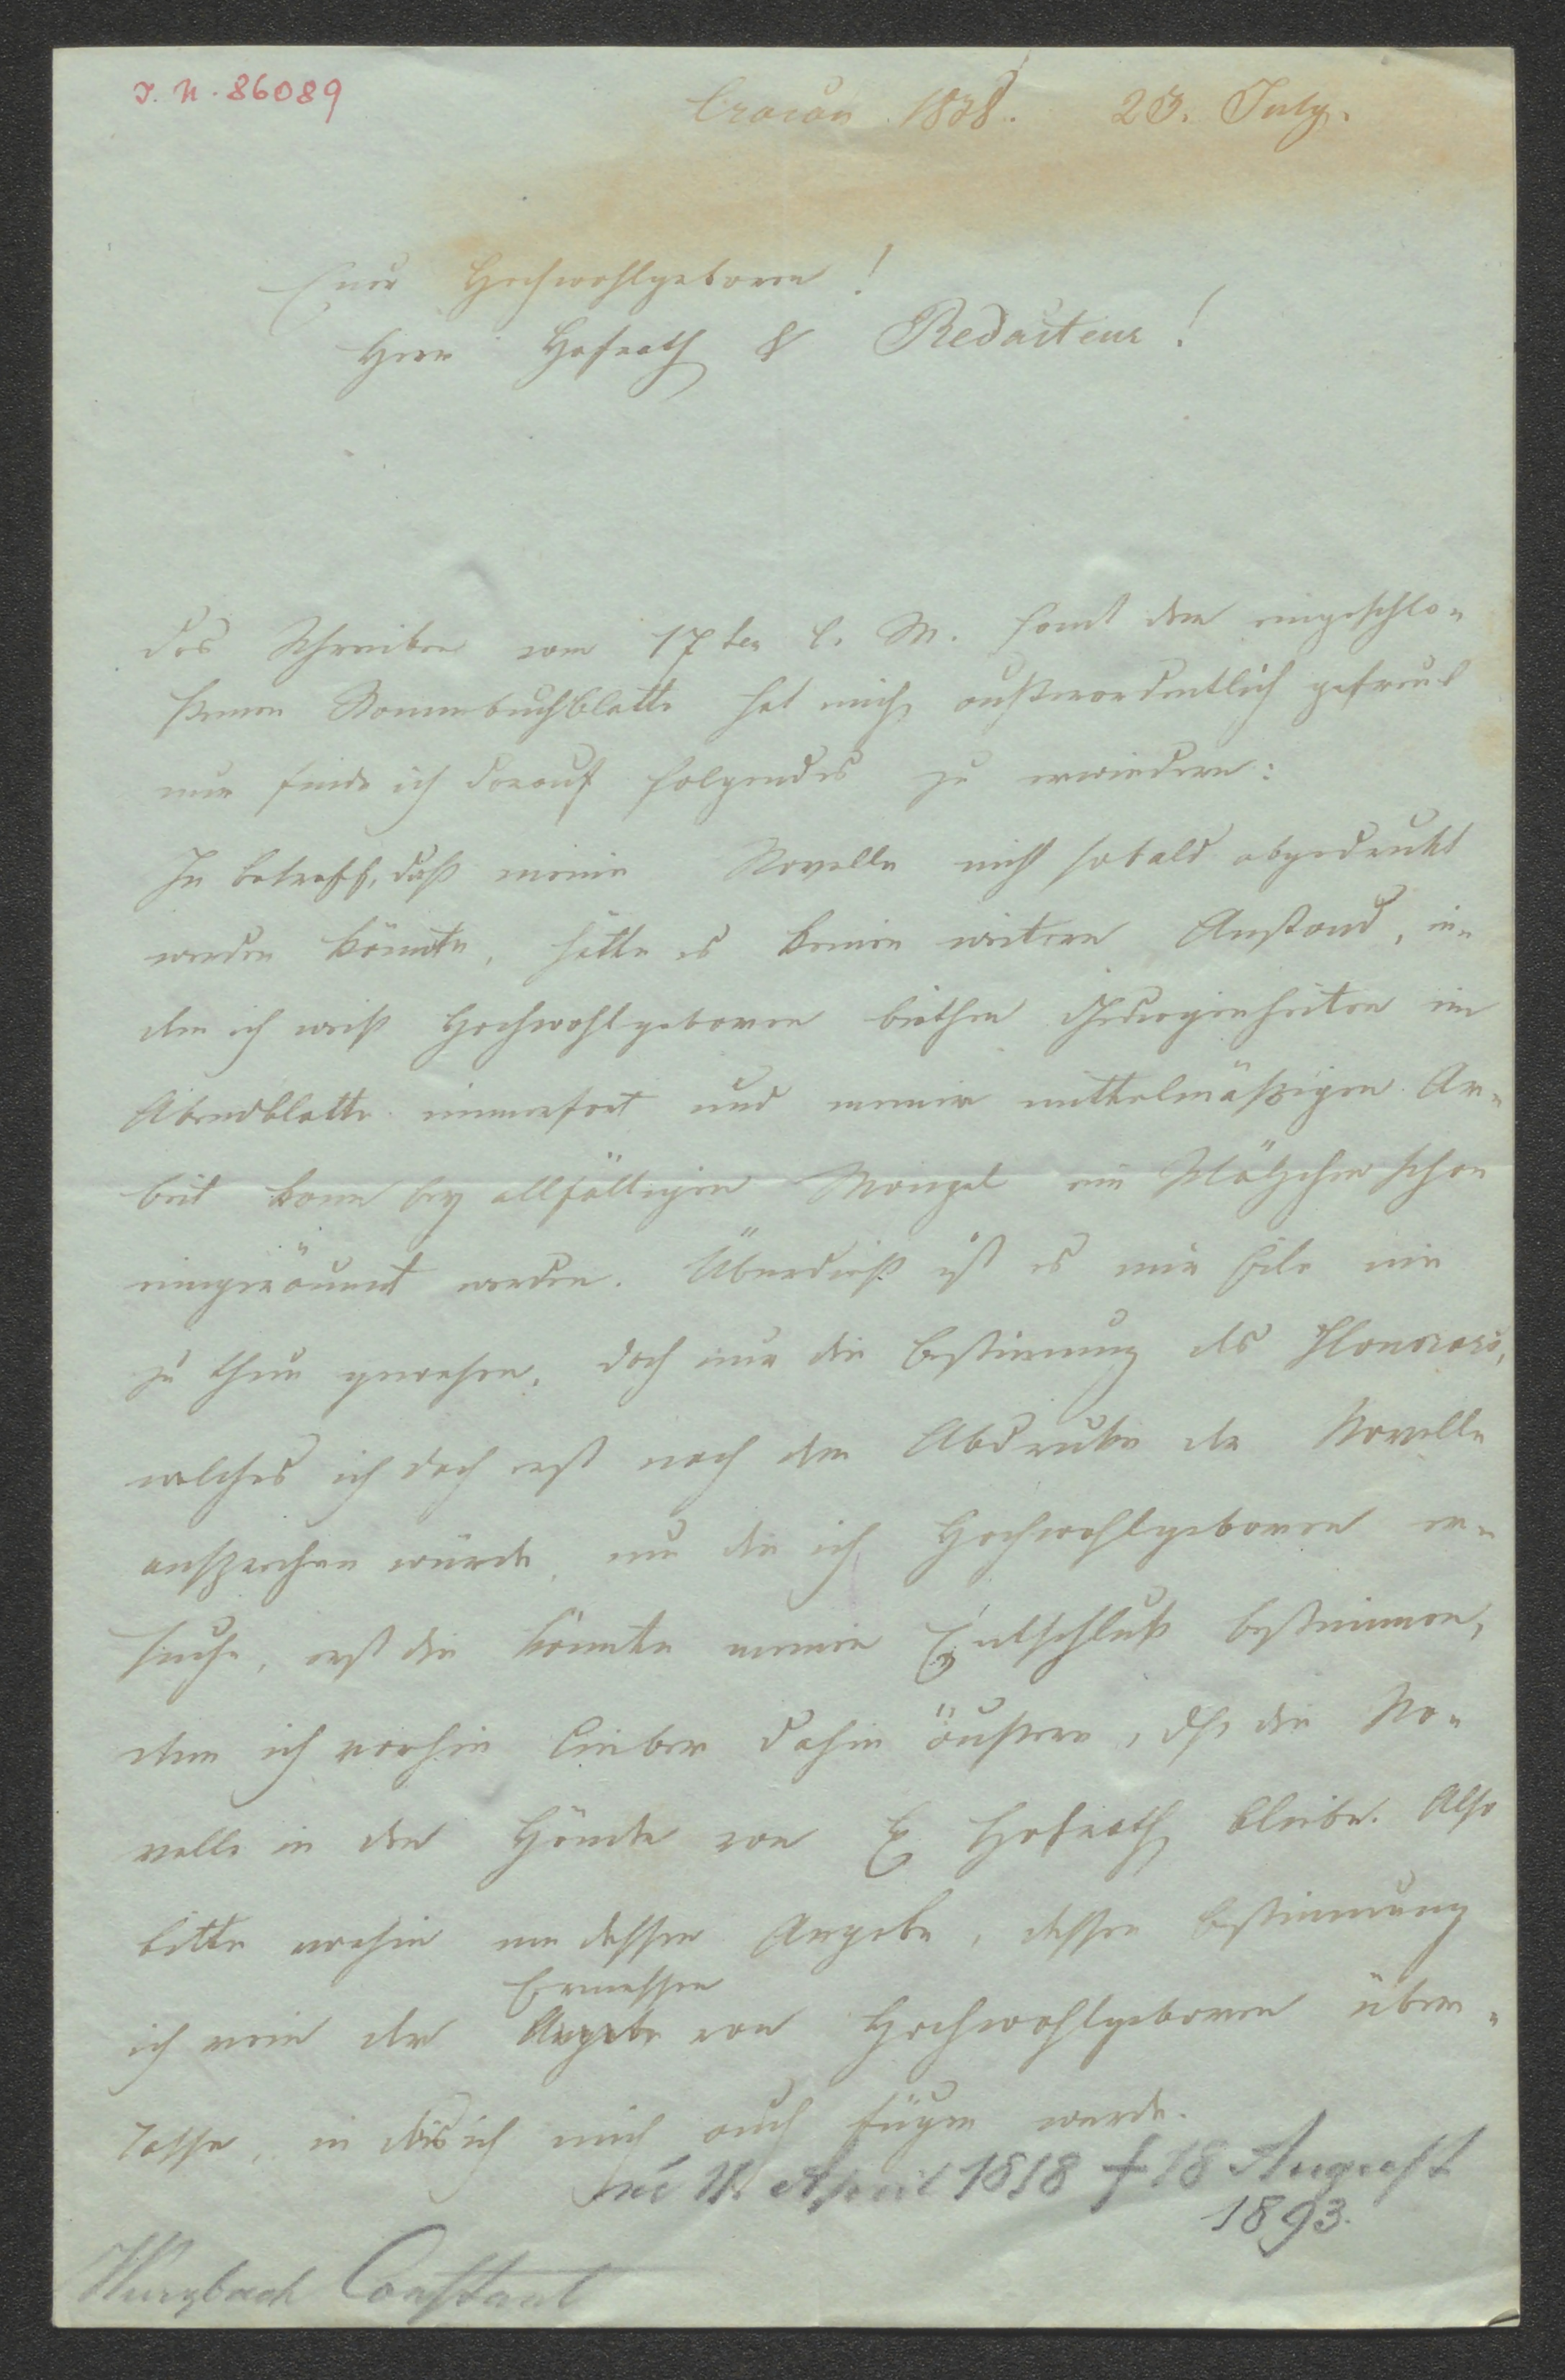 I. N. 86089
Cracau 1838. 23. July.
Euer Hochwohlgeboren!
Herr Hofrath & Redacteur!
das Schreiben vom 17ten l. M. samt dem eingeschlo-
ßenen Stammbuchblatte hat mich außerordentlich gefreut
nun finde ich darauf folgendes zu erwiedern:
In betreff, daß meine Novelle nicht sobald abgedrukt
werden könnte, hätte es keinen weitern Anstand, in-
dem ich weiß Hochwohlgeboren biethen Gediegenheiten im
Abendblatte immerfort und meiner mittelmäßigen Ar-
beit kann bey allfälligen Mangel ein Plätzchen schon
eingeräumt werden. Überdieß ist es mir Eile nie
zu thun gewesen, doch nur die Bestimmung des Honorars,
welches ich doch erst nach dem Abdruke der Novelle
ansprechen würde, um die ich Hochwohlgeboren er-
suche, erst die könnte meinen Entschluß bestimmen,
den ich vorhin lieber dahin äußere, dß die No-
velle in den Händen von E Hofrath bleibe. Also
bitte vorhin um dessen Angabe, dessen Bestimmung
Ermessen
ich rein der Angabe von Hochwohlgeboren über-
lasse, in das ich mich auch fügen werde.
11. April 1818 † 18 August
1893.
Wurzbach Constant